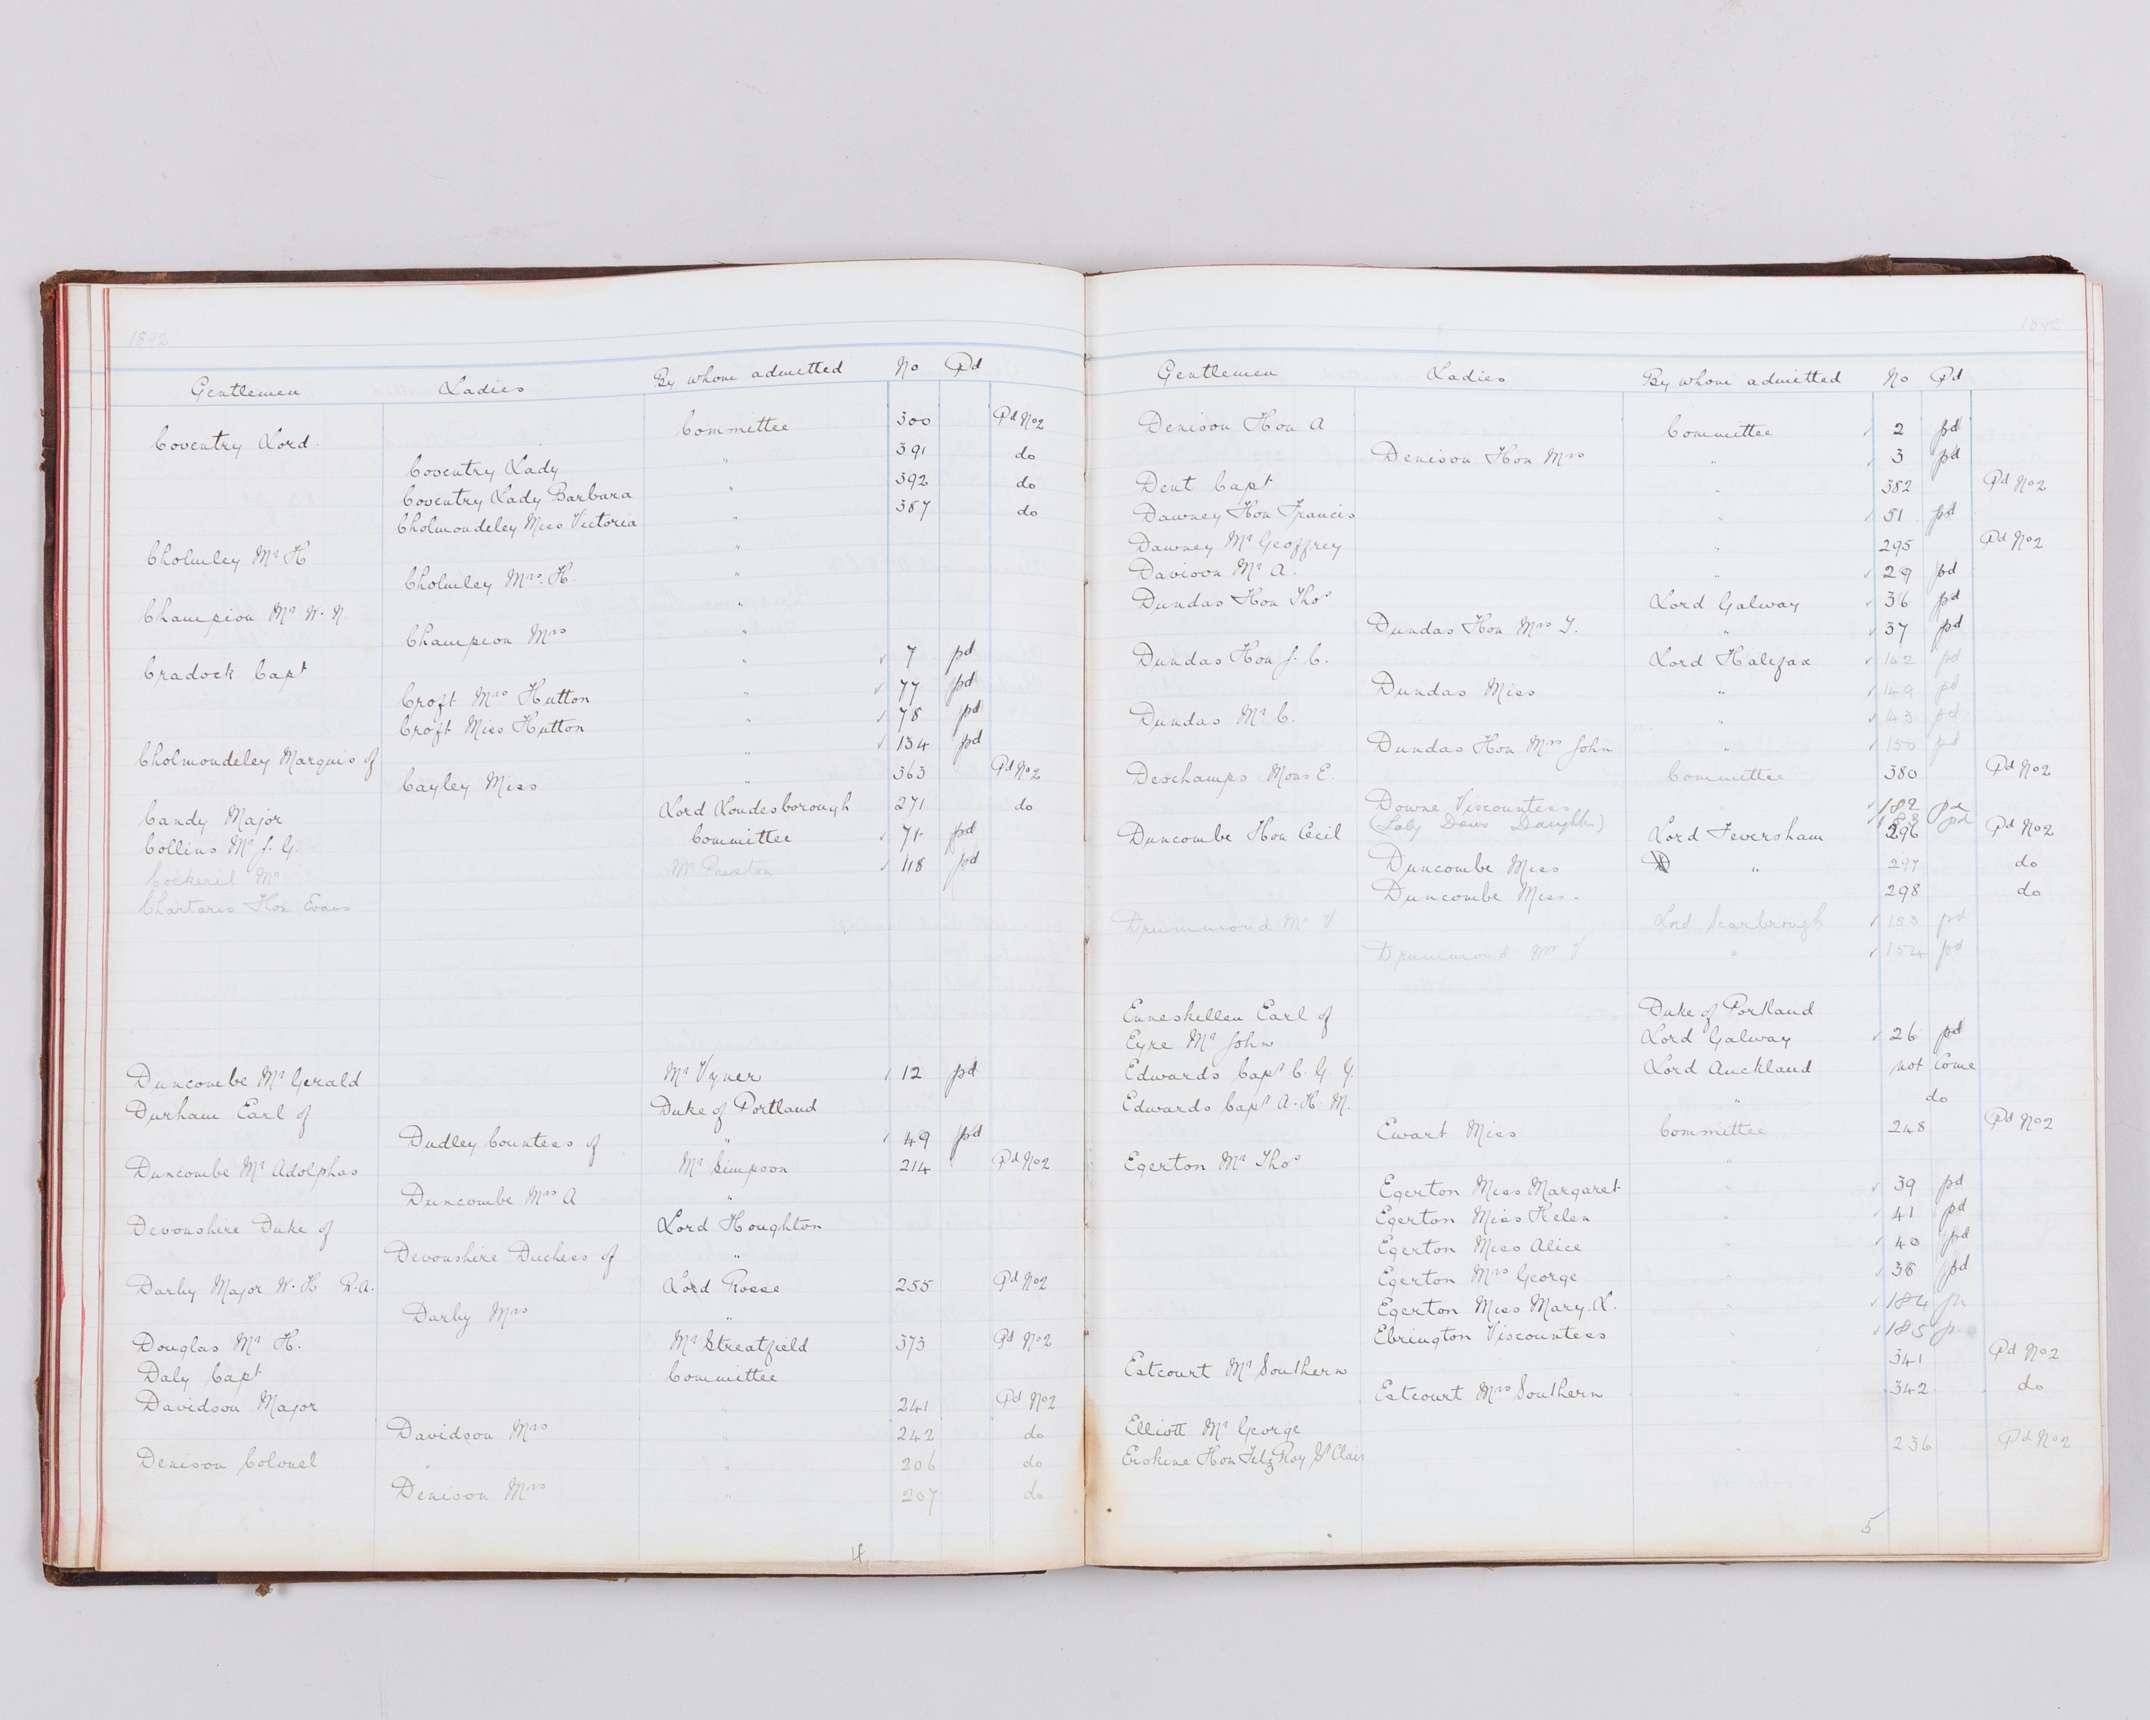 1892
Gentlemen Ladies By whom admitted No Pd
Coventry Lord Committee 300 Pd No 2
Coventry Lady " 391 do
Coventry Lady Barbara " 392 do
Cholmondeley Miss Victoria " 387 do
Cholmley Mr H "
Cholmley Mrs H. "
Champion Mr W. N "
Champion Mrs "
Cradock Capt " ✓ 7 pd
Croft Mrs Hutton " ✓ 77 pd
Croft Miss Hutton " ✓ 78 pd
Cholmondeley Marquis of " ✓ 134 pd
Cayley Miss " 363 Pd No 2
Candy Major Lord Londesborough 271 do
Collins Mr J. G. Committee ✓ 71 pd
Cockeril Mr Mr Preston ✓ 118 pd
Charteris Hon Evans
Duncombe Mr Gerald Mr Vyner ✓ 12 pd
Durham Earl of Duke of Portland
Dudley Countess of " ✓ 49 pd
Duncombe Mr Adolphus Mr Simpson 214 Pd No 2
Duncombe Mrs A "
Devonshire Duke of Lord Houghton
Devonshire Duchess of "
Darby Major W. H R.A. Lord Rosse 255 Pd No 2
Darby Mrs "
Douglas Mr H. Mr Streatfield 373 Pd No 2
Daly Capt Committee
Davidson Major " 241 Pd No 2
Davidson Mrs " 242 do
Denison Colonel " 206 do
Denison Mrs " 207 do
4
1892
Gentlemen Ladies By whom admitted No Pd
Denison Hon A Committee ✓ 2 pd
Denison Hon Mrs " ✓ 3 pd
Dent Capt " 382 Pd No 2
Dawney Hon Francis " ✓ 51 pd
Dawney Mr Geoffrey " 295 Pd No 2
Davison Mr A. " ✓ 29 pd
Dundas Hon Thos Lord Galway ✓ 36 pd
Dundas Hon Mrs T. " ✓ 37 pd
Dundas Hon J. C. Lord Halifax ✓ 142 pd
Dundas Miss " ✓ 149 pd
Dundas Mr C. " ✓ 143 pd
Dundas Hon Mrs John " ✓ 150 pd
Deschamps Mons E. Committee 380 Pd No 2
Downe Viscountess ✓ 182 pd
(Lady Daughter) 183 pd
Duncombe Hon Cecil Lord Feversham 296 Pd No 2
Duncombe Miss " 297 do
Duncombe Miss. 298 do
Drummond Mr V Lord Scarbrough ✓ 153 pd
Drummond Mrs V " ✓ 154 pd
Enneskillen Earl of Duke of Portland
Eyre Mr John Lord Galway ✓ 26 pd
Edwards Capt C. G. G. Lord Auckland not Come
Edwards Capt A. H. M. " do
Ewart Miss Committee 248 Pd No 2
Egerton Mr Thos "
Egerton Miss Margaret " ✓ 39 pd
Egerton Miss Helen " ✓ 41 pd
Egerton Miss Alice " ✓ 40 pd
Egerton Mrs George " ✓ 38 pd
Egerton Miss Mary. L. " ✓ 184
Ebrington Viscountess " ✓ 185
Estcourt Mr Southern " 341 Pd No 2
Estcourt Mrs Southern " 342 do
Elliott Mr George
Erskine Hon FitzRoy St Clair " 236 Pd No 2
5